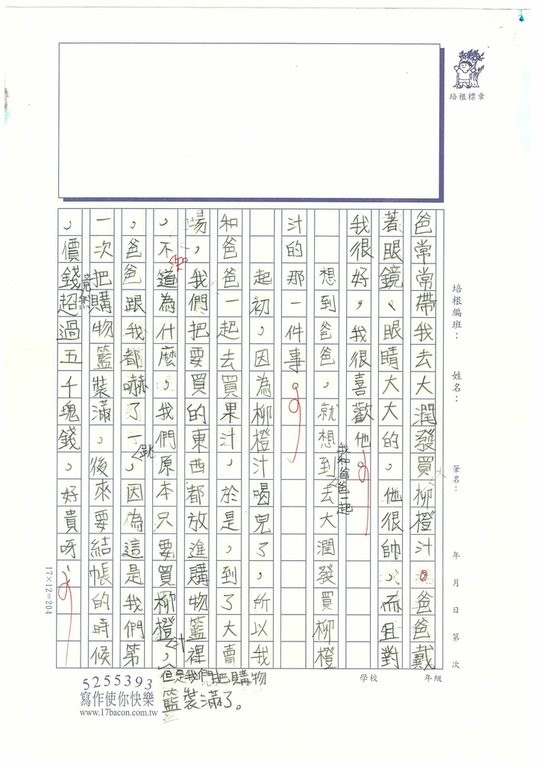 爸常常帶我去大潤發買柳橙汁。爸爸戴
著眼鏡、眼睛大大的。他很帥，而且對
我很好，我很喜歡他。
想到爸爸，就想到去大潤發買柳橙
我和爸爸一起
汁的那一件事。
起初，因為柳橙汁喝完了，所以我
和爸爸一起去買果汁，於是，到了大賣
場，我們把要買的東西都放進購物籃裡
，不知道為什麼，我們原本只要買柳橙汁，
但是我們把購物
籃裝滿了。
，爸爸跟我都嚇了一跳，因為這是我們第
一次把購物籃裝滿，後來要結帳的時候
，價錢竟然超過五千塊錢，好貴呀！
培根標章
培根編班：
姓名：
筆名：
年 月 日 第 次
學校 年級
17×12=204
5255393
寫作使你快樂
www.17bacon.com.tw